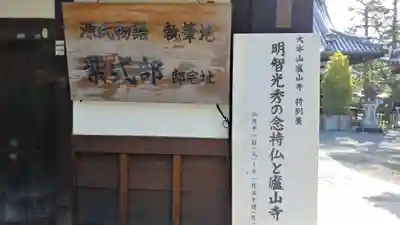 源氏物語 執筆地
紫式部 邸宅址
大本山廬山寺 特別展
明智光秀の念持仏と廬山寺